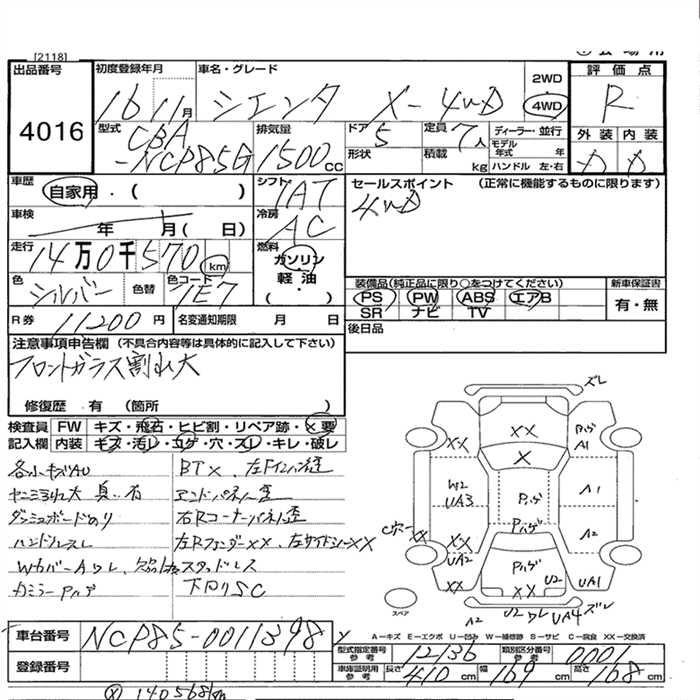 [2118]
出品番号 初度登録年月 車名・グレード 2WD 評価点
4016 16 11月 シエンタ X-4WD 4WD R
型式 CBA-NCP85G 排気量 1500cc ドア 5 形状 定員 7人 積載 kg ディーラー・並行 モデル年式 年 ハンドル 左・右 外装 内装
D D
車歴 自家用・( ) シフト IAT セールスポイント (正常に機能するものに限ります)
車検 年 月( 日) 冷房 AC 4WD
走行 14万0千570 km 燃料 ガソリン 軽油・( )
色 シルバー 色替 色コード 1E7
装備品(純正品に限り○をつけてください) 新車保証書
PS PW ABS エアB 有・無
SR ナビ TV
R券 11200円 名変通知期限 月 日 後日品
注意事項申告欄 (不具合内容等は具体的に記入して下さい)
フロントガラス割れ大
修復歴 有 (箇所 )
検査員 FW キズ・飛石・ヒビ割・リペア跡・X要
記入欄 内装 キズ・汚レ・コゲ・穴・スレ・キレ・破レ
各小キズAU BTX、左Fインパネ歪
ヤニ汚れ大 臭い有 エンドパネル歪
ダッシュボードのり 右Rコーナーパネル歪
ハンドルスレ 左RフェンダーXX、左サイドシルXX
WカバーAワレ、 スタッドレス
カラミラーPハゲ 下回りSC
ズレ
XX
XX X Pハゲ A1
W2 UA3 Pハゲ A1
C穴 XX XX Pハゲ A2
UA2 Pハゲ U2 UA1
XX XX
スペア A2 U2 ワレ UA4 ズレ
A-キズ E-エクボ U-凹み W-補修跡 S-サビ C-腐食 XX-交換済
車台番号 NCP85-0011398 型式指定番号 参考 12136 類別区分番号 参考 0001
登録番号 車庫証明用 参考 長さ 410cm 幅 169cm 高さ 168cm
Ⓧ 140568km